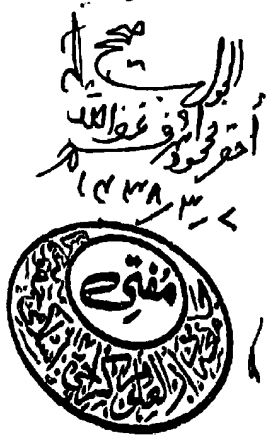 الجواب صحیح
احقر محمود اشرف غفر اللہ
۱۴۳۸ - ۳
مفتی
دارالعلوم کراچی